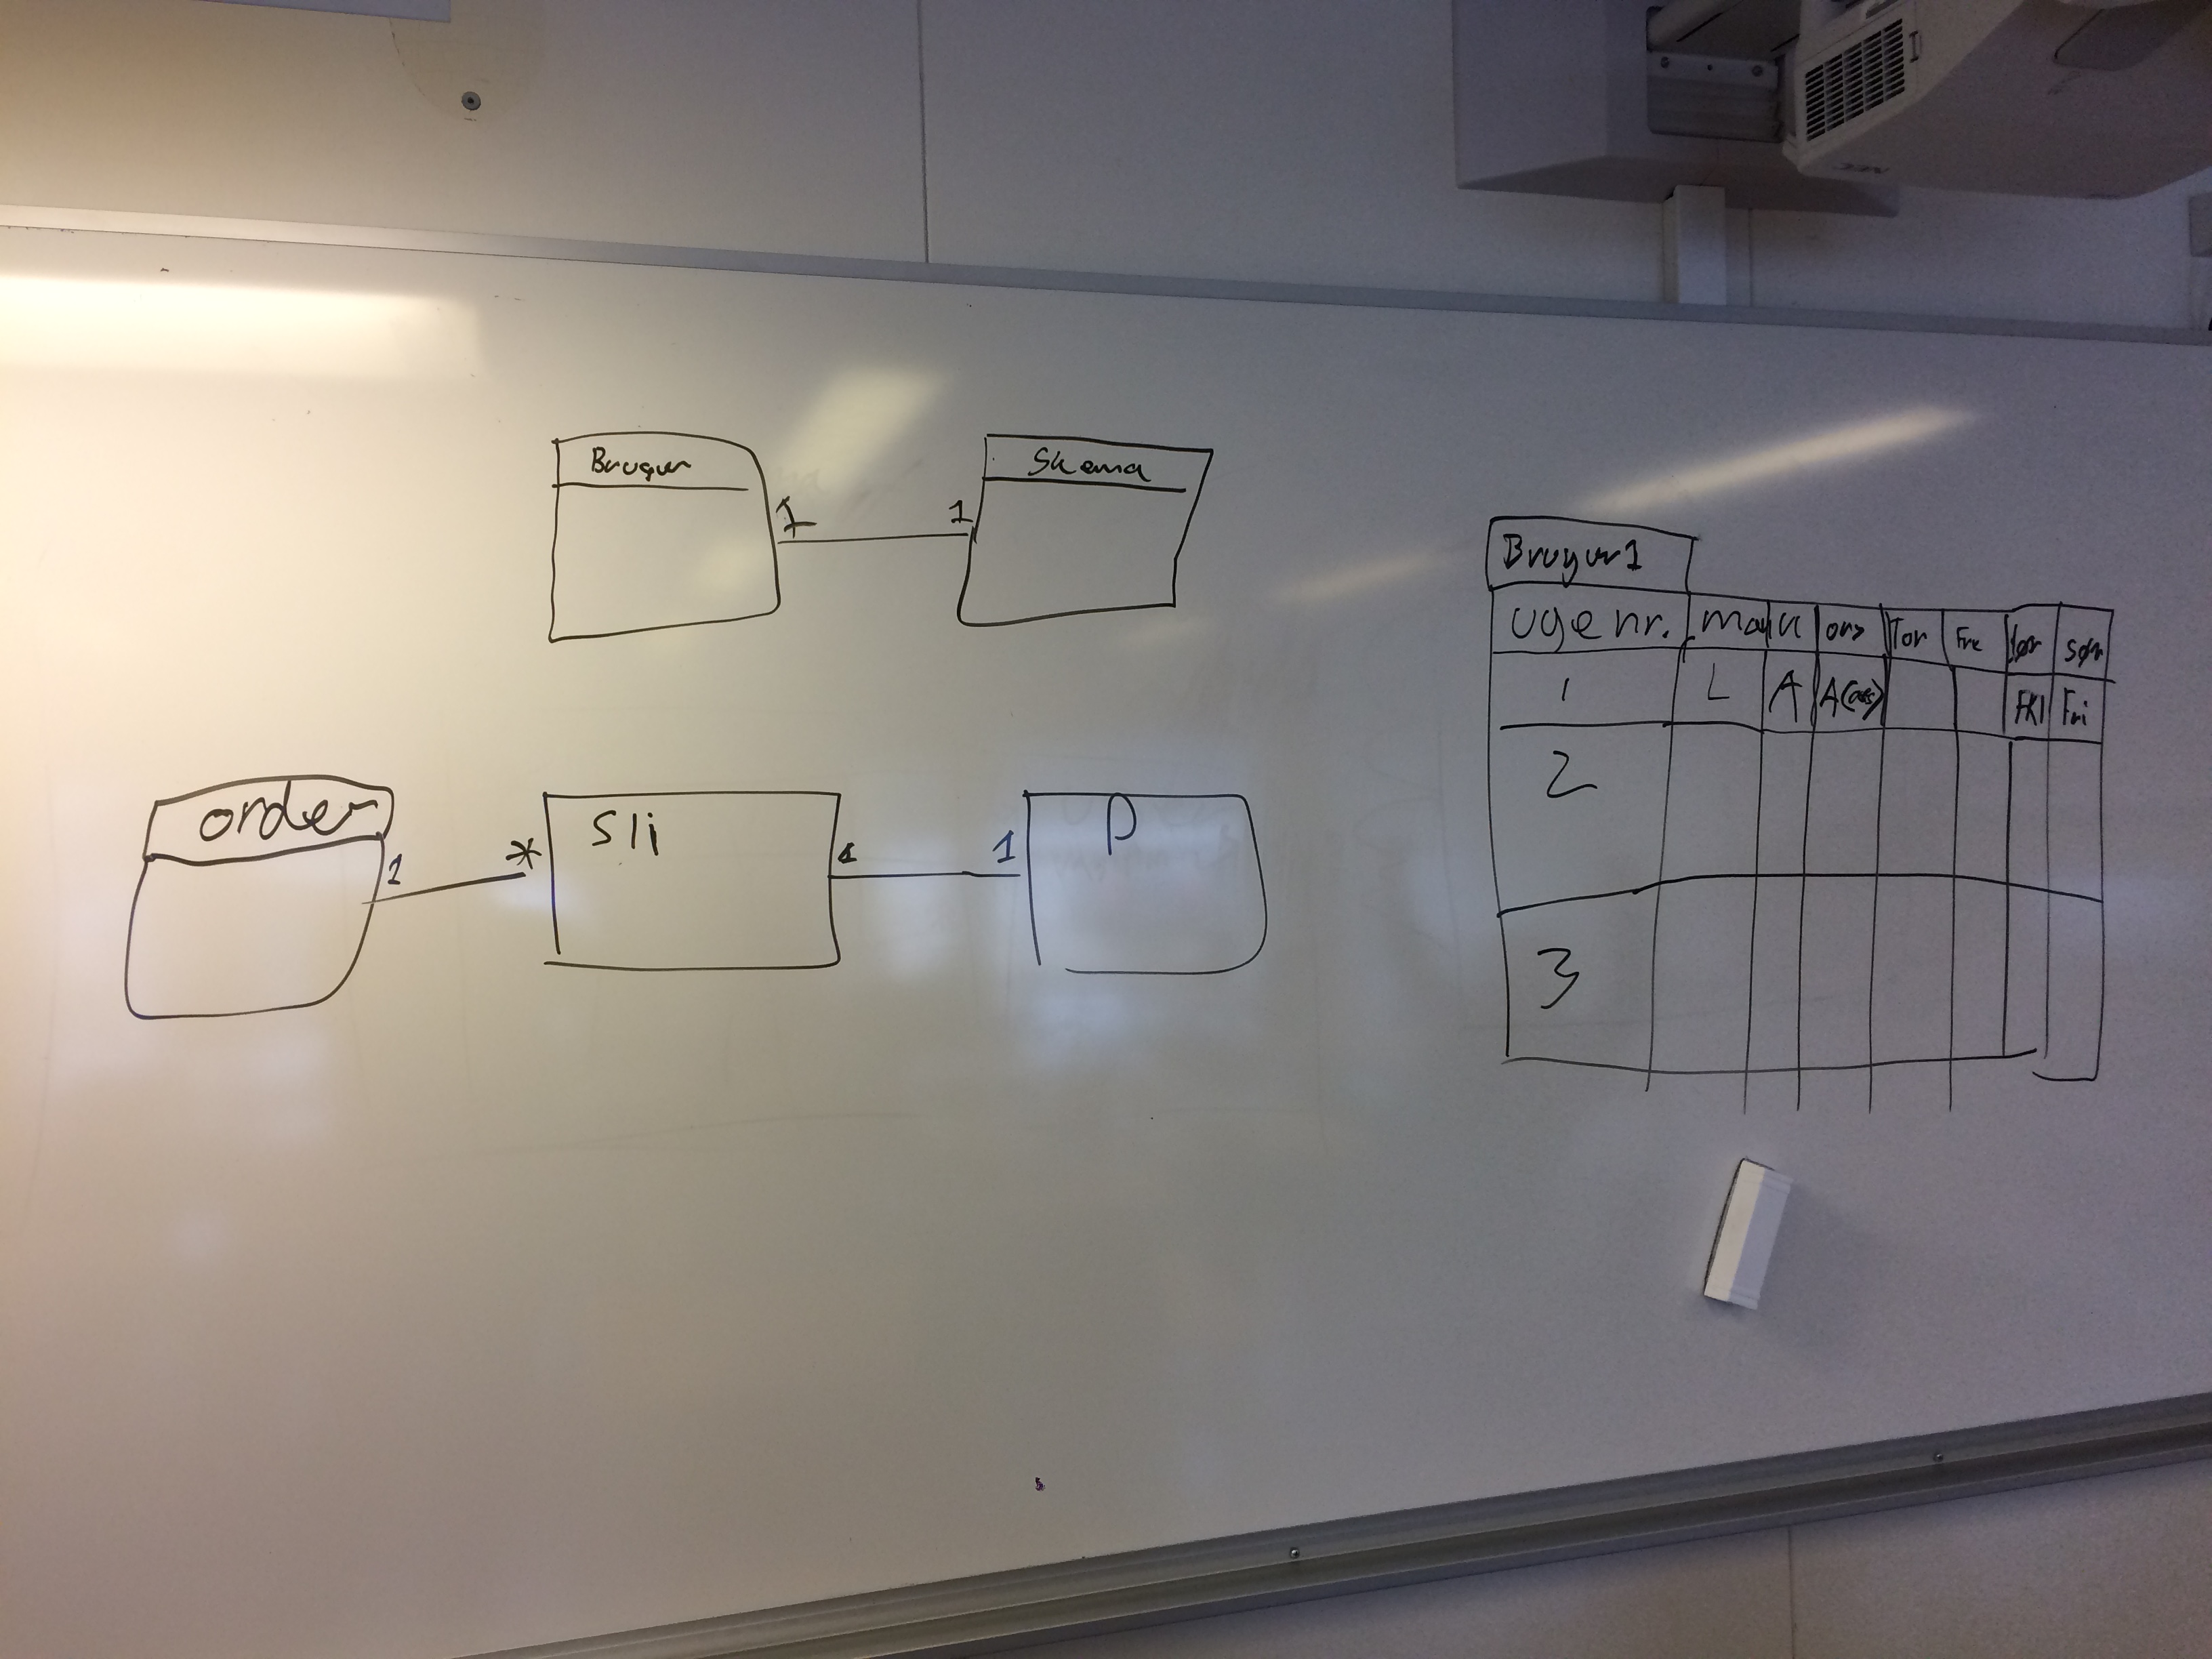 Bruger
Skema
1
1
order
1
*
Sli
1
1
P
Bruger1
uge nr. man ons Tor Fre lør søn
1 L A A(afs) FRI Fri
2
3